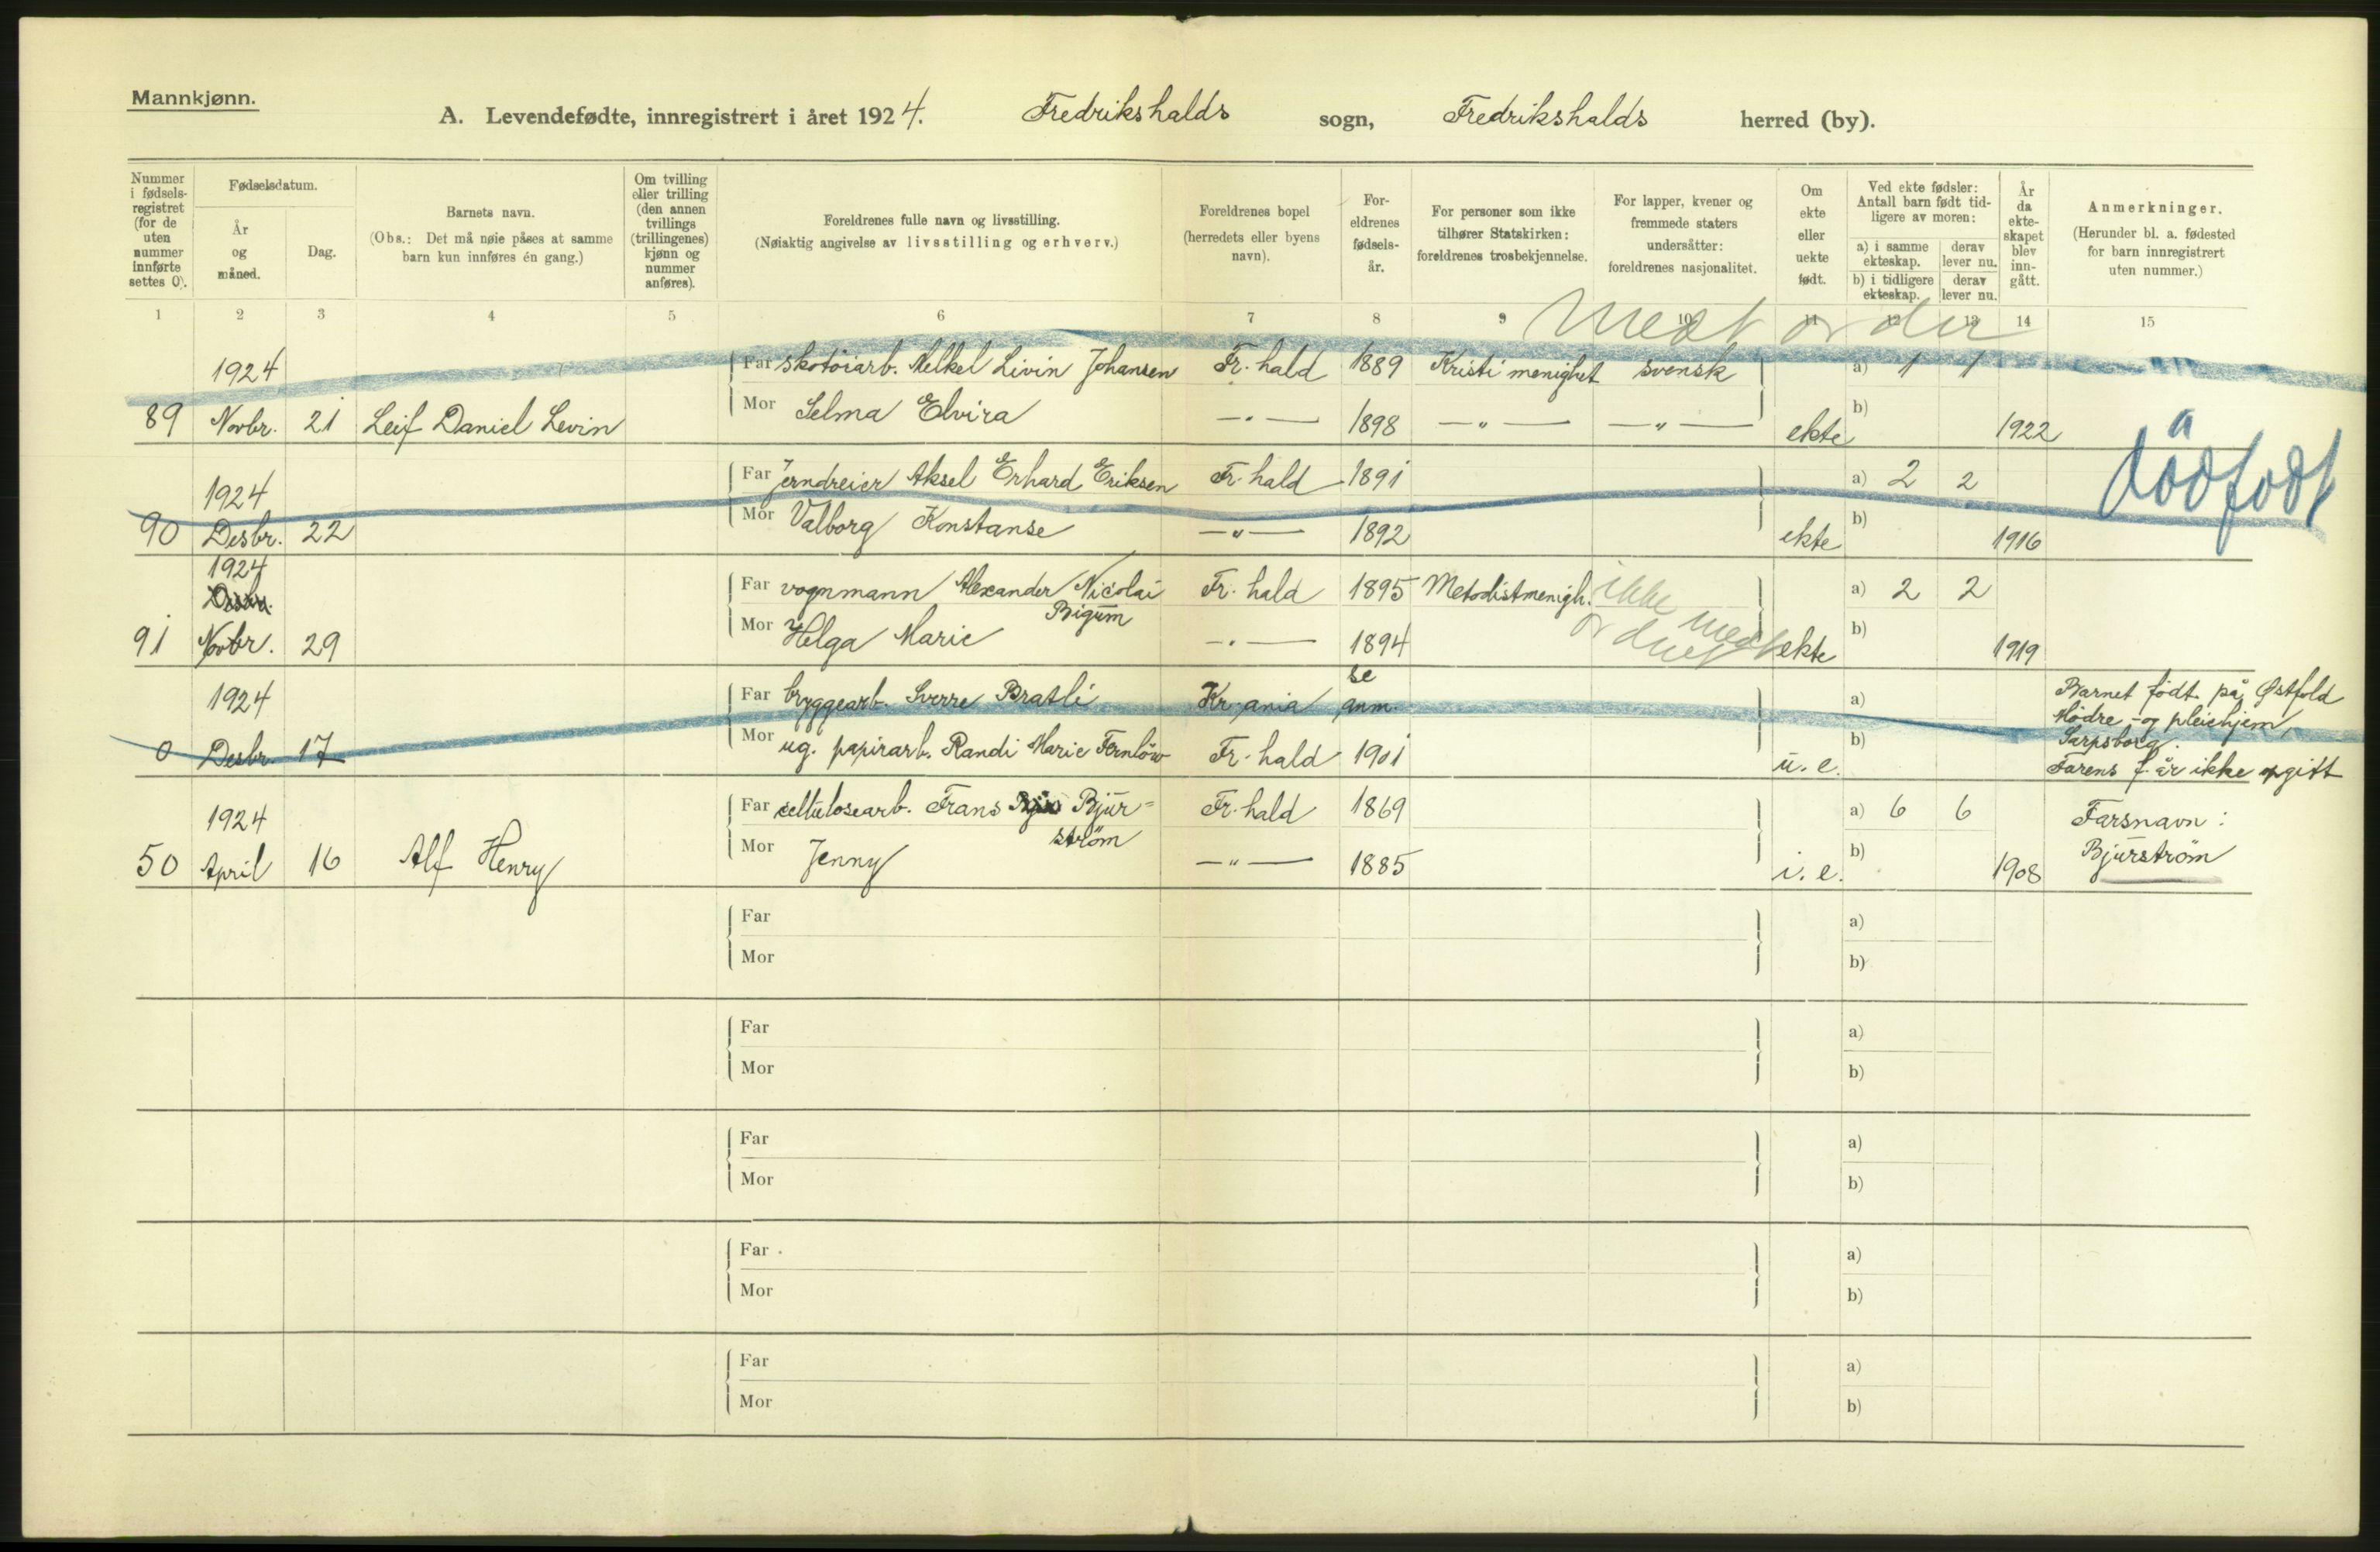 Mannkjønn.
A. Levendefødte, innregistrert i året 1924. Fredrikshalds sogn, Fredrikshalds herred (by).
Nummer i fødsels-registret (for de uten nummer innførte settes 0).
Fødselsdatum.
År og måned.
Dag.
Barnets navn.
(Obs.: Det må nøie påses at samme barn kun innføres én gang.)
Om tvilling eller trilling (den annen tvillings (trillingenes) kjønn og nummer anføres).
Foreldrenes fulle navn og livsstilling.
(Nøiaktig angivelse av livsstilling og erhverv.)
Foreldrenes bopel (herredets eller byens navn).
For-eldrenes fødsels-år.
For personer som ikke tilhører Statskirken: foreldrenes trosbekjennelse.
For lapper, kvener og fremmede staters undersåtter: foreldrenes nasjonalitet.
Om ekte eller uekte født.
Ved ekte fødsler: Antall barn født tid-ligere av moren:
a) i samme ekteskap. derav lever nu.
b) i tidligere ekteskap. derav lever nu.
År da ekte-skapet blev inn-gått.
Anmerkninger.
(Herunder bl. a. fødested for barn innregistrert uten nummer.)
1 2 3 4 5 6 7 8 9 10 11 12 13 14 15
1924 Far skotöiarb. Melkel Livin Johansen Fr. hald 1889 Kristi menighet svensk a) 1 1
89 Novbr. 21 Leif Daniel Levin Mor Selma Elvira —"— 1898 —"— —"— ekte b) 1922
1924 Far Jerndreier Aksel Erhard Eriksen Fr. hald 1891 a) 2 2 dödfödt
90 Desbr. 22 Mor Valborg Konstanse —"— 1892 ekte b) 1916
1924 Far vognmann Alexander Nicolai Bigum Fr. hald 1895 Metodistmenigh. ikke med a) 2 2
91 Novbr. 29 Mor Helga Marie —"— 1894 ekte b) 1919
1924 Far bryggearb. Sverre Bratli Kr.ania se anm. a) Barnet födt på Østfold
Mödre- og pleiehjem,
0 Desbr. 17 Mor ug. papirarb. Randi Marie Fernlöw Fr. hald 1901 u. e. b) Sarpsborg.
Farens f. år ikke opgitt
1924 Far cellulosearb. Frans Bjur=ström Fr. hald 1869 a) 6 6 Farsnavn:
50 April 16 Alf Henry Mor Jenny —"— 1885 i. e. b) 1908 Bjurström
Far a)
Mor b)
Far a)
Mor b)
Far a)
Mor b)
Far a)
Mor b)
Far a)
Mor b)